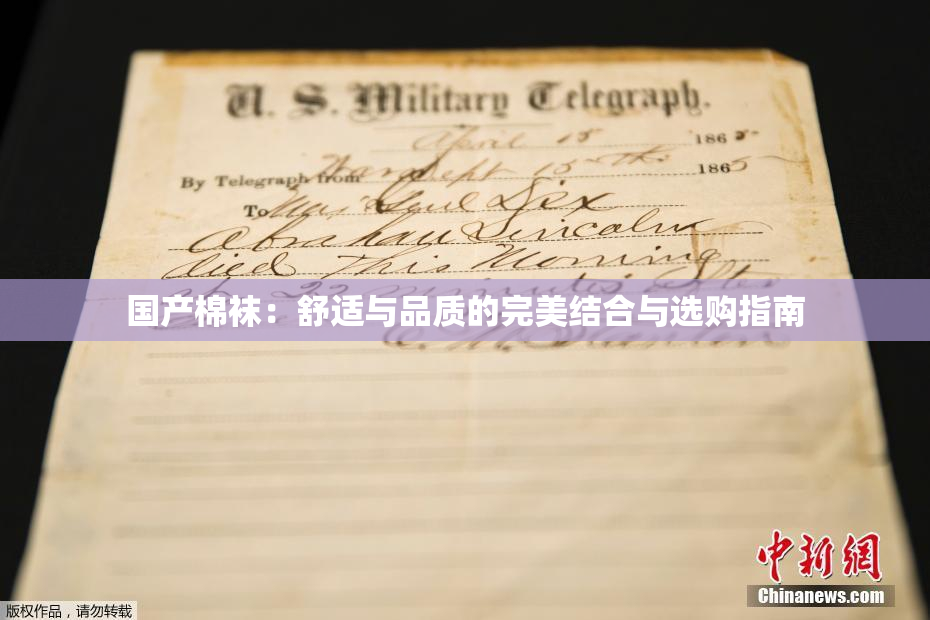 U. S. Military Telegraph.
April 15 1865
By Telegraph from War Dept 15th 1865
To Maj Genl Dix
Abraham Lincoln
died This Morning
at 22 minutes after
国产棉袜：舒适与品质的完美结合与选购指南
E. M. Stanton
中新網
Chinanews.com
版权作品，请勿转载